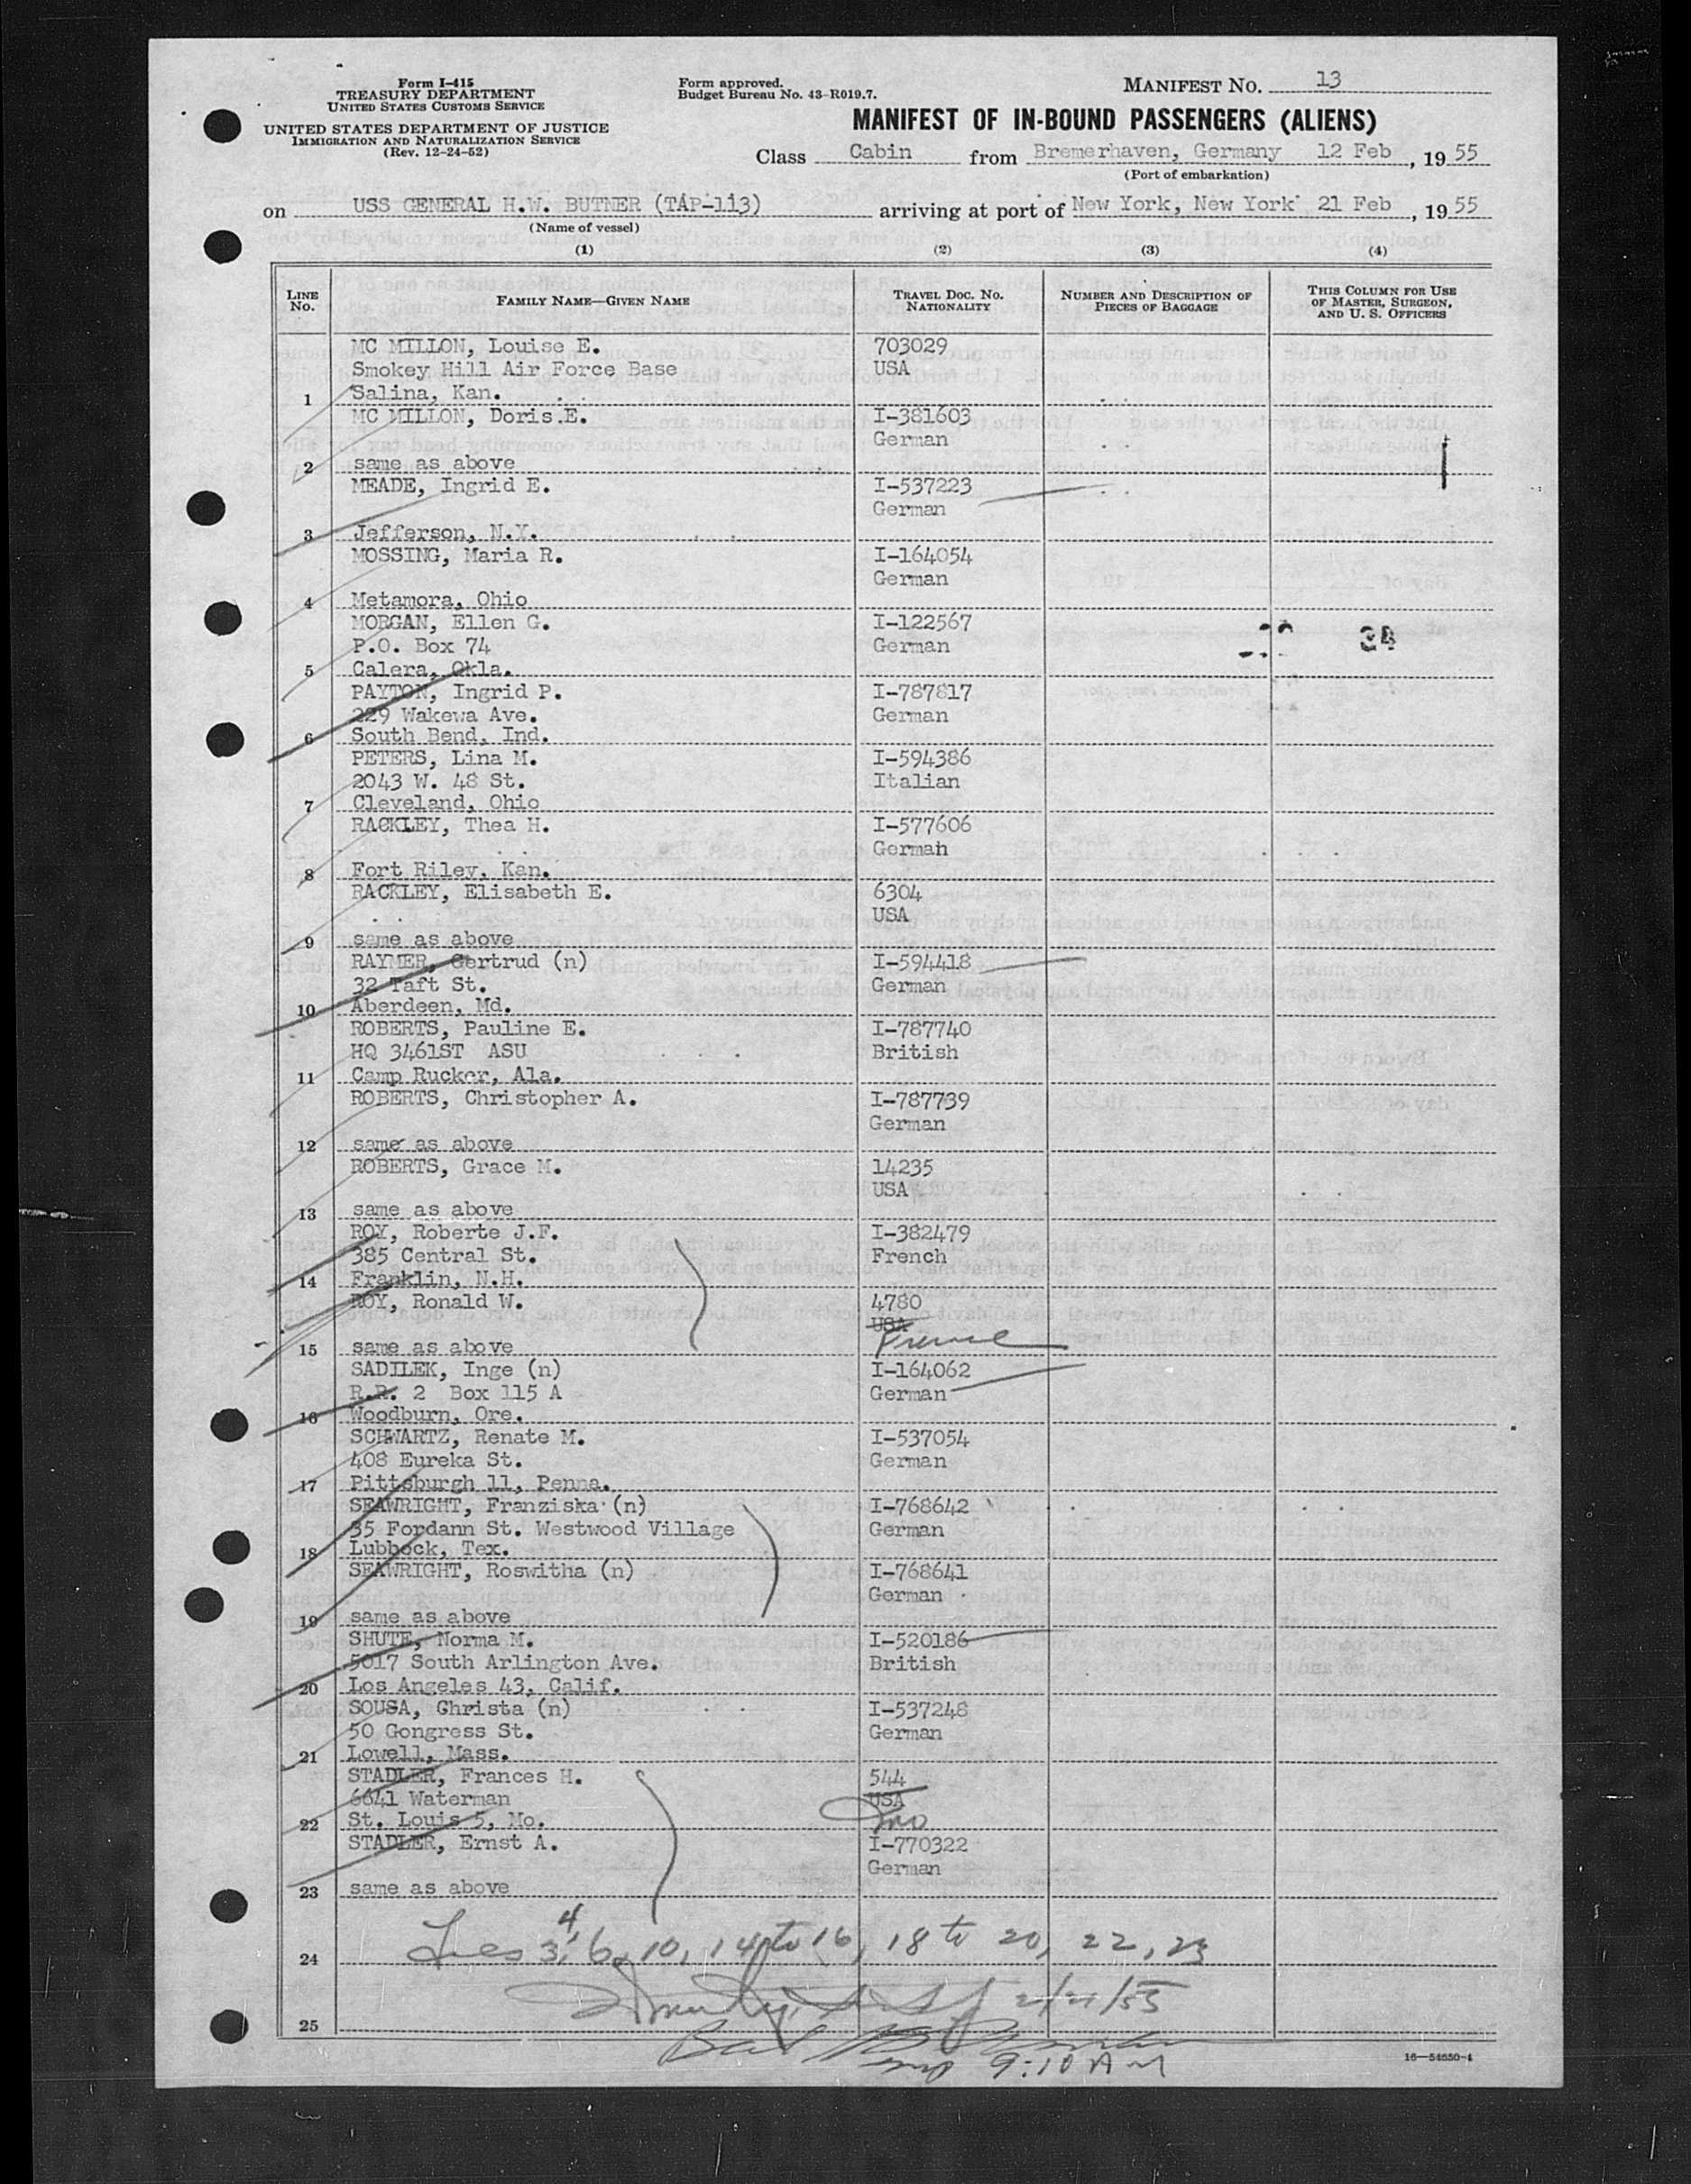 Form I-415
TREASURY DEPARTMENT
UNITED STATES CUSTOMS SERVICE
UNITED STATES DEPARTMENT OF JUSTICE
IMMIGRATION AND NATURALIZATION SERVICE
(Rev. 12-24-52)
Form approved.
Budget Bureau No. 43-R019.7.
MANIFEST NO. 13
MANIFEST OF IN-BOUND PASSENGERS (ALIENS)
Class Cabin from Bremerhaven, Germany 12 Feb, 19 55
(Port of embarkation)
on USS GENERAL H.W. BUTNER (TAP-113) arriving at port of New York, New York 21 Feb, 19 55
(Name of vessel)
(1) (2) (3) (4)
LINE NO. FAMILY NAME—GIVEN NAME TRAVEL DOC. NO. NATIONALITY NUMBER AND DESCRIPTION OF PIECES OF BAGGAGE THIS COLUMN FOR USE OF MASTER, SURGEON, AND U. S. OFFICERS
MC MILLON, Louise E. 703029
Smokey Hill Air Force Base USA
1 Salina, Kan.
MC MILLON, Doris E. I-381603
German
2 same as above
MEADE, Ingrid E. I-537223
German
3 Jefferson, N.Y.
MOSSING, Maria R. I-164054
German
4 Metamora, Ohio
MORGAN, Ellen G. I-122567
P.O. Box 74 German 34
5 Calera, Okla.
PAYTON, Ingrid P. I-787817
229 Wakewa Ave. German
6 South Bend, Ind.
PETERS, Lina M. I-594386
2043 W. 48 St. Italian
7 Cleveland, Ohio
RACKLEY, Thea H. I-577606
German
8 Fort Riley, Kan.
RACKLEY, Elisabeth E. 6304
USA
9 same as above
RAYMER, Gertrud (n) I-594418
32 Taft St. German
10 Aberdeen, Md.
ROBERTS, Pauline E. I-787740
HQ 3461ST ASU British
11 Camp Rucker, Ala.
ROBERTS, Christopher A. I-787739
German
12 same as above
ROBERTS, Grace M. 14235
USA
13 same as above
ROY, Roberte J.F. I-382479
385 Central St. French
14 Franklin, N.H.
ROY, Ronald W. 4780
USA
France
15 same as above
SADILEK, Inge (n) I-164062
R.R. 2 Box 115 A German
16 Woodburn, Ore.
SCHWARTZ, Renate M. I-537054
408 Eureka St. German
17 Pittsburgh 11, Penna.
SEAWRIGHT, Franziska (n) I-768642
35 Fordann St. Westwood Village German
18 Lubbock, Tex.
SEAWRIGHT, Roswitha (n) I-768641
German
19 same as above
SHUTE, Norma M. I-520186
5017 South Arlington Ave. British
20 Los Angeles 43, Calif.
SOUSA, Ghrista (n) I-537248
50 Gongress St. German
21 Lowell, Mass.
STADLER, Frances H. 544
6641 Waterman USA
22 St. Louis 5, Mo.
STADLER, Ernst A. I-770322
German
23 same as above
24 Lines 3, 4, 6, 10, 14 to 16, 18 to 20, 22, 23
2/21/55
25
9:10 AM
16—54650-1